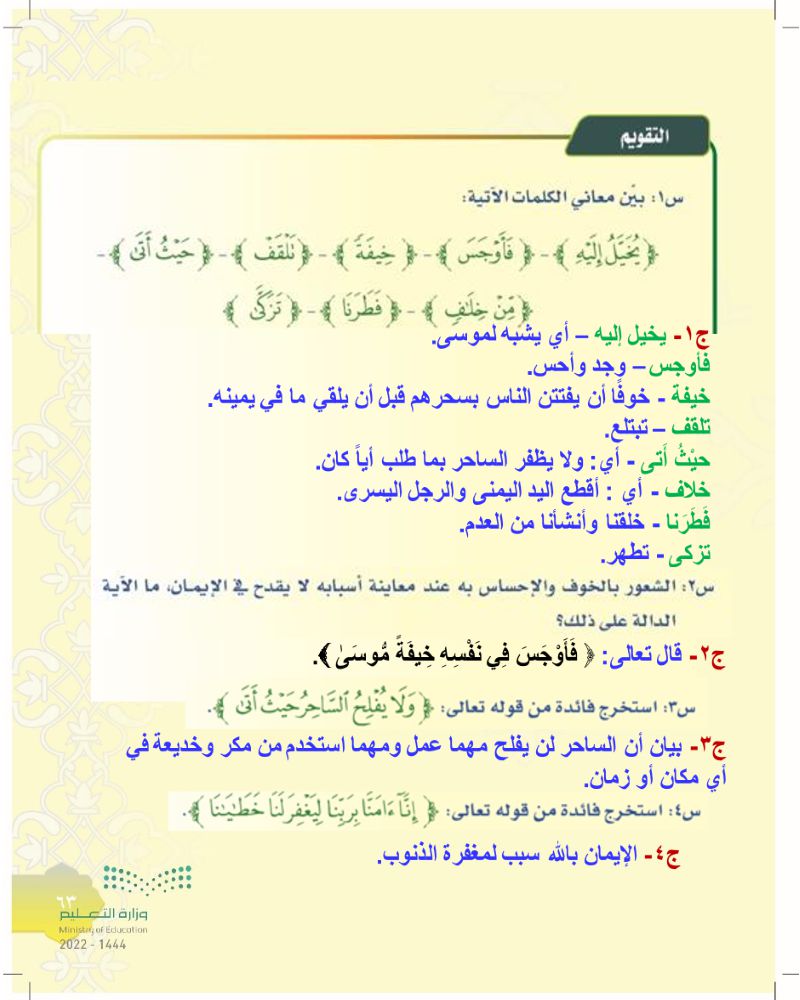 التقويم
س١: بيّن معاني الكلمات الآتية:
﴿يُخَيَّلُ إِلَيْهِ﴾ - ﴿فَأَوْجَسَ﴾ - ﴿خِيفَةً﴾ - ﴿تَلْقَفْ﴾ - ﴿حَيْثُ أَتَىٰ﴾ -
﴿مِّنْ خِلَٰفٍ﴾ - ﴿فَطَرَنَا﴾ - ﴿تَزَكَّىٰ﴾
ج١- يخيل إليه – أي يشبه لموسى.
فأوجس – وجد وأحس.
خيفة - خوفًا أن يفتتن الناس بسحرهم قبل أن يلقي ما في يمينه.
تلقف – تبتلع.
حيْثُ أَتى - أي: ولا يظفر الساحر بما طلب أياً كان.
خلاف - أي : أقطع اليد اليمنى والرجل اليسرى.
فَطَرَنا - خلقنا وأنشأنا من العدم.
تزكى - تطهر.
س٢: الشعور بالخوف والإحساس به عند معاينة أسبابه لا يقدح في الإيمان، ما الآية
الدالة على ذلك؟
ج٢- قال تعالى: ﴿ فَأَوْجَسَ فِي نَفْسِهِ خِيفَةً مُّوسَىٰ ﴾.
س٣: استخرج فائدة من قوله تعالى: ﴿وَلَا يُفْلِحُ ٱلسَّاحِرُ حَيْثُ أَتَىٰ﴾.
ج٣- بيان أن الساحر لن يفلح مهما عمل ومهما استخدم من مكر وخديعة في
أي مكان أو زمان.
س٤: استخرج فائدة من قوله تعالى: ﴿إِنَّآ ءَامَنَّا بِرَبِّنَا لِيَغْفِرَ لَنَا خَطَٰيَٰنَا﴾.
ج٤- الإيمان بالله سبب لمغفرة الذنوب.
٦٣
وزارة التعـليم
Ministry of Education
2022 - 1444